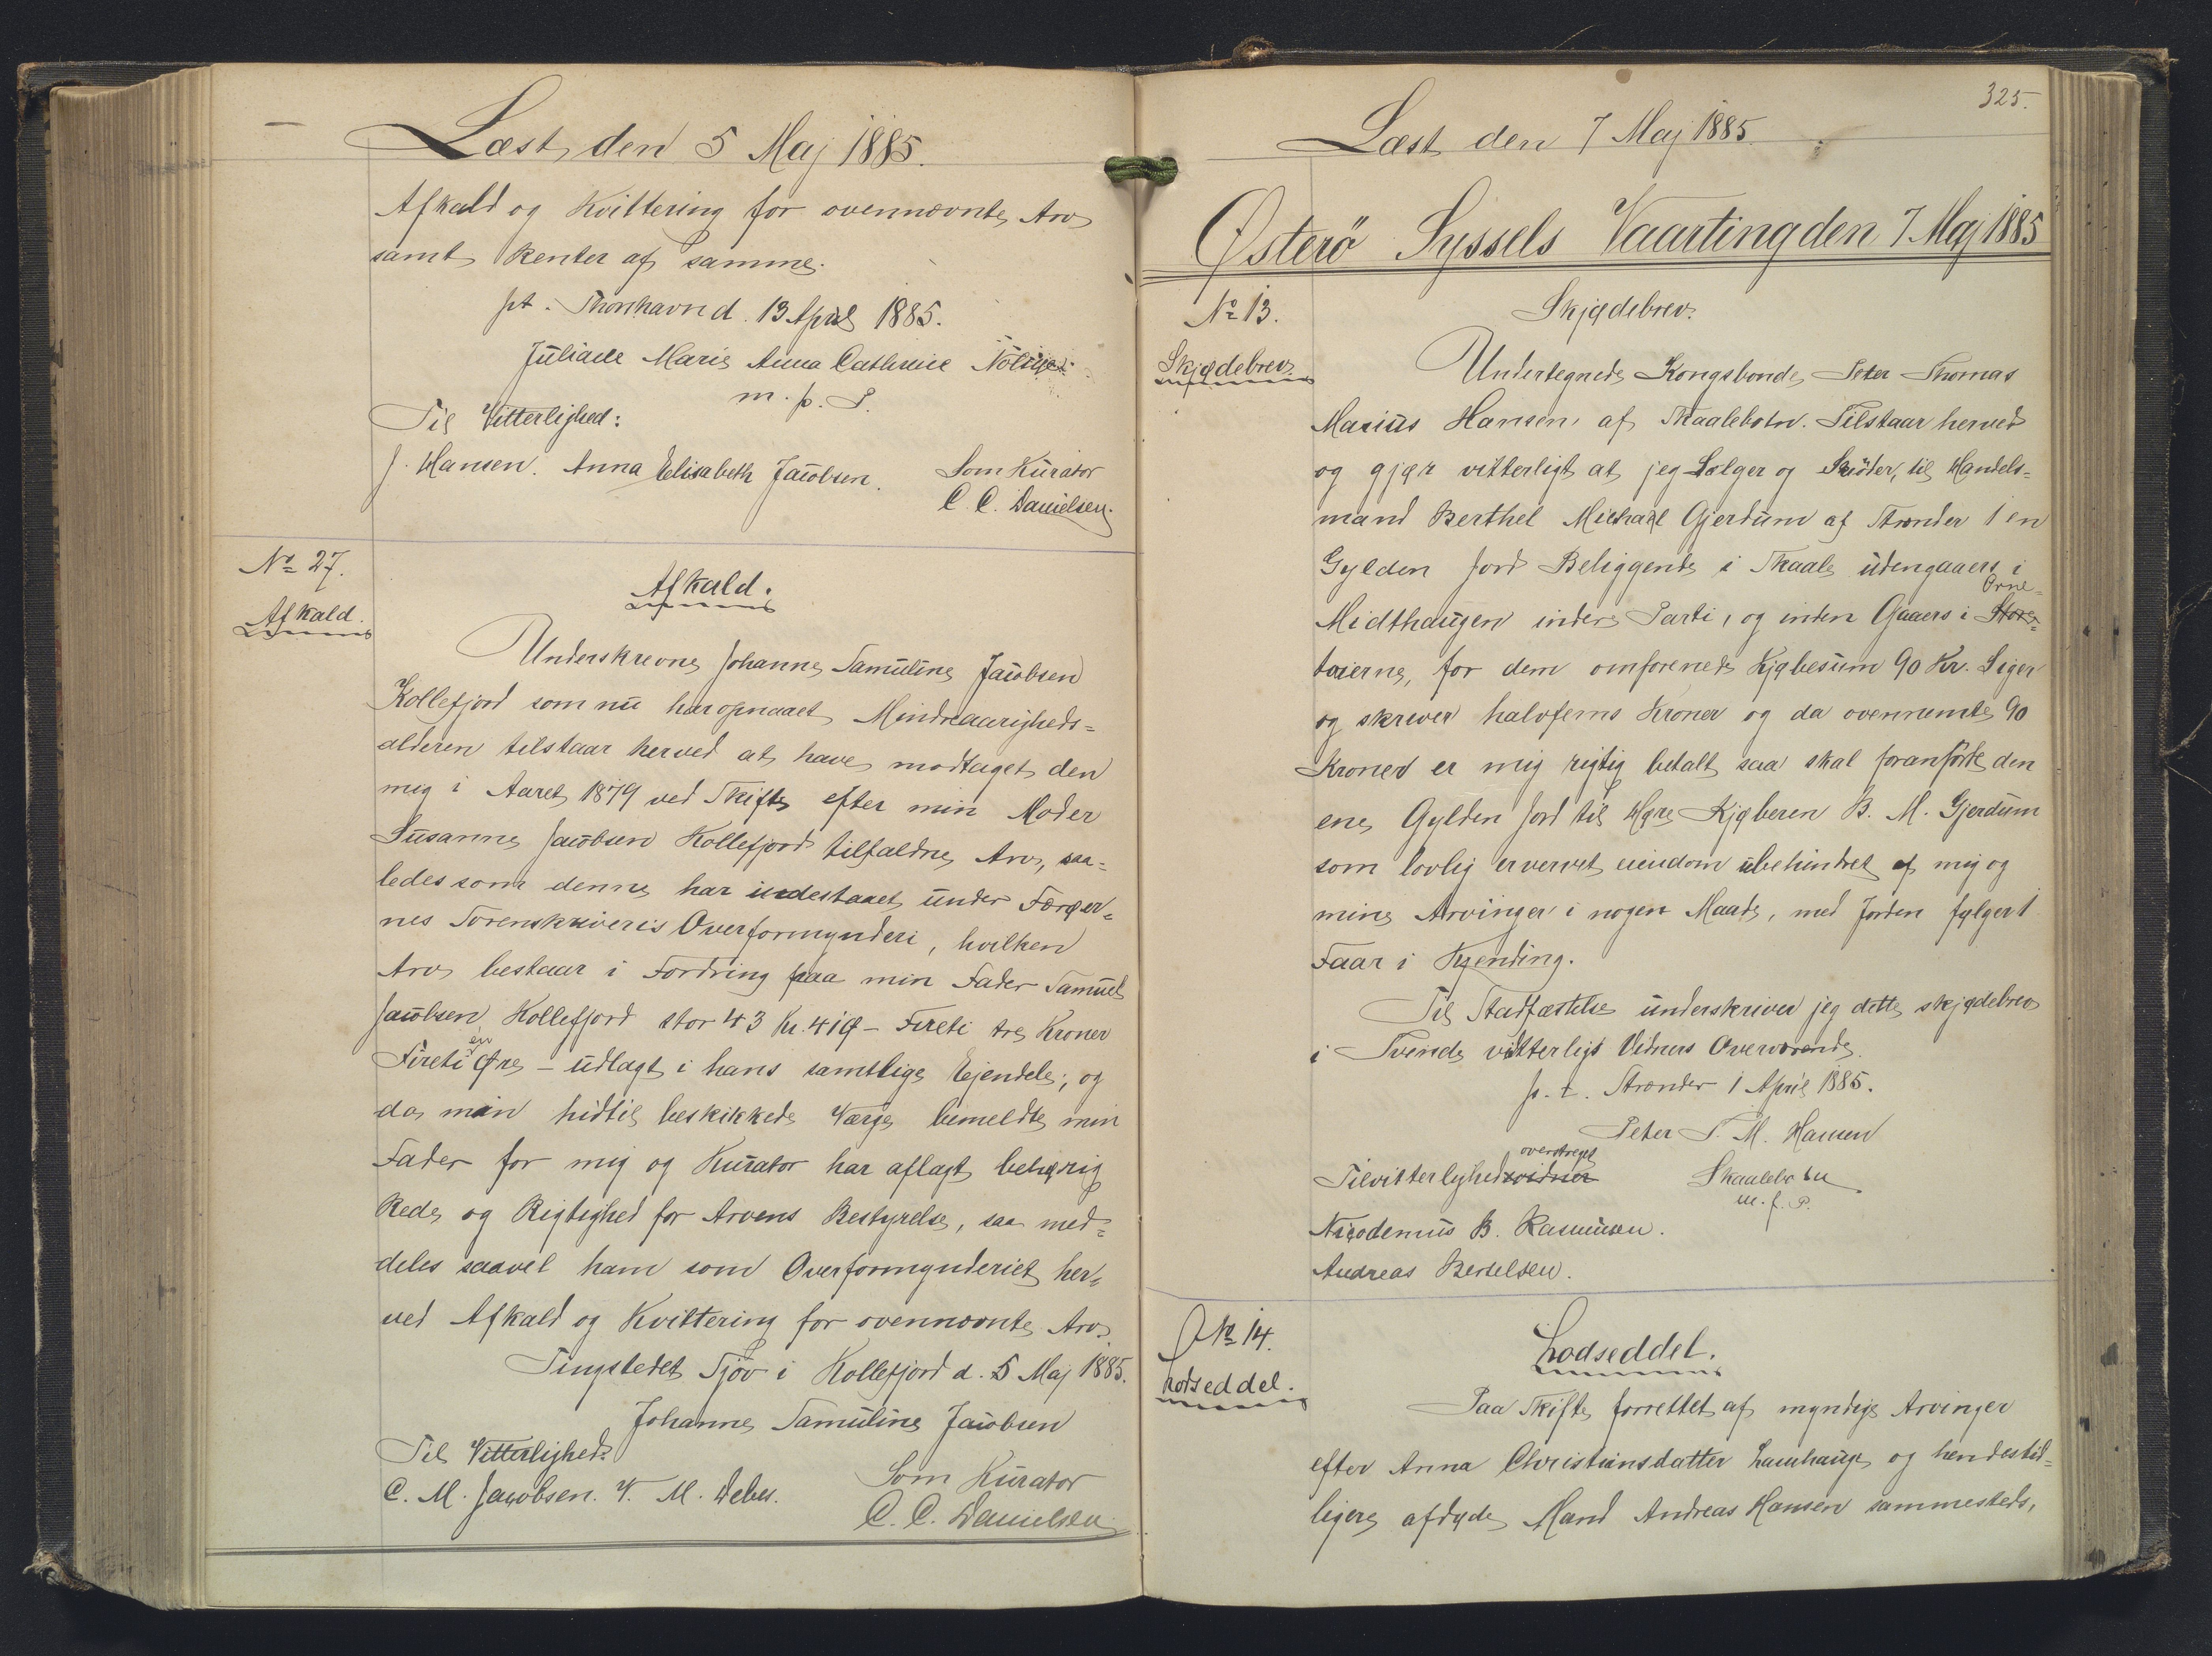 Læst den 5 Maj 1885.
Afkald og Kvittering for ovennævnte Arv
samt Renter af samme.
pt. Thorshavn d. 13 April 1885.
Juliane Marie Anna Cathrine Nolsøe
m. p. P.
Til Vitterlighed:
J. Hansen. Anna Elisabeth Jacobsen.
Som Kurator
C. C. Danielsen.
No 27.
Afkald.
Afkald.
Underskrevne Johanne Samuline Jacobsen
Kollefjord som nu har opnaaet Mindreaarigheds-
alderen tilstaar herved at have modtaget den
mig i Aaret 1879 ved Skifte efter min Moder
Susanne Jacobsen Kollefjord tilfaldne Arv, saa-
ledes som denne har indestaaet under Færøer-
nes Sorenskriveris Overformynderi, hvilken
Arv bestaar i Fordring paa min Fader Samuel
Jacobsen Kollefjord stor 43 Kr. 41Ø - Fireti tre Kroner
Fireti en Øre - udlagt i hans samtlige Ejendele; og
da min hidtil beskikkede Værge bemeldte min
Fader for mig og Kurator har aflagt behørig
Rede og Rigtighed for Arvens Bestyrelse, saa med-
deles saavel ham som Overformynderiet her-
ved Afkald og Kvittering for ovennævnte Arv.
Tingstedet Sjóv i Kollefjord d. 5 Maj 1885.
Johanne Samuline Jacobsen
Til Vitterlighed:
C. M. Jacobsen. V. M. Debes.
Som Kurator
C. C. Danielsen
325.
Læst den 7 Maj 1885.
Østerö Syssels Vaarting den 7 Maj 1885
No 13.
Skjødebrev.
Skjødebrev.
Undertegnede Kongsbonde Peter Thomas
Marius Hansen, af Skaalebotn. Tilstaar herved
og gjør vitterligt at jeg Sælger og Skjöder, til Handels-
mand Berthel Michael Gjerdum af Strønder 1 en
Gylden Jord Beliggende i Skaale udengaaers i
Midthaugen indere Parti, og inden Gaaers i Store- Örne-
taierne, for dem omforenede Kjøbesum 90 Kr. Siger
og skriver halvfems Kroner og da ovennemte 90
Kroner er mig rigtig betalt saa skal foranförte den
ene Gylden Jord til Høre Kjøberen B. M. Gjerdum
som lovlig ervervet eiendom ubehindret af mig og
mine Arvinger i nogen Maade, med Jorden følger 1
Faar i Kjending.
Til Stadfæstelse underskriver jeg dette skjødebrev
i Tvende vitterligs Vidners Overværende.
p. t. Strønder 1 April 1885.
Peter T. M. Hansen
Skaalebotn
m. f. P.
overstreget
Tilvitterlyhedsvidner
Nicodemus B. Rasmusen.
Andreas Bertelsen.
No 14.
Lodseddel.
Lodseddel.
Paa Skifte forrettet af myndige Arvinger
efter Anna Christiansdatter Lamhauge og hendes tid-
ligere afdøde Mand Andreas Hansen sammesteds,